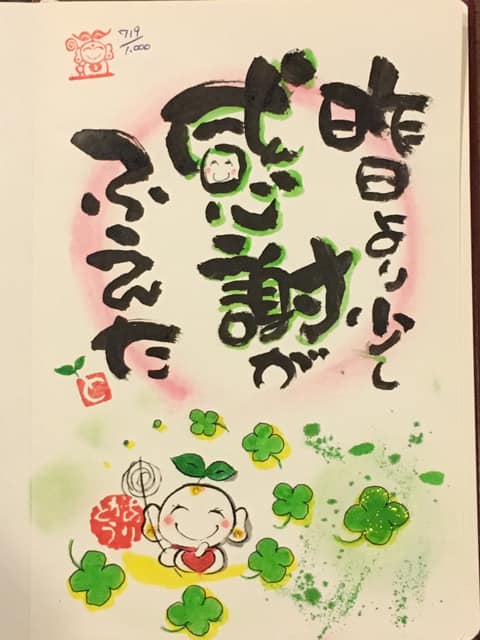 昨日より少し
感謝が
ふえた
719/1,000
と